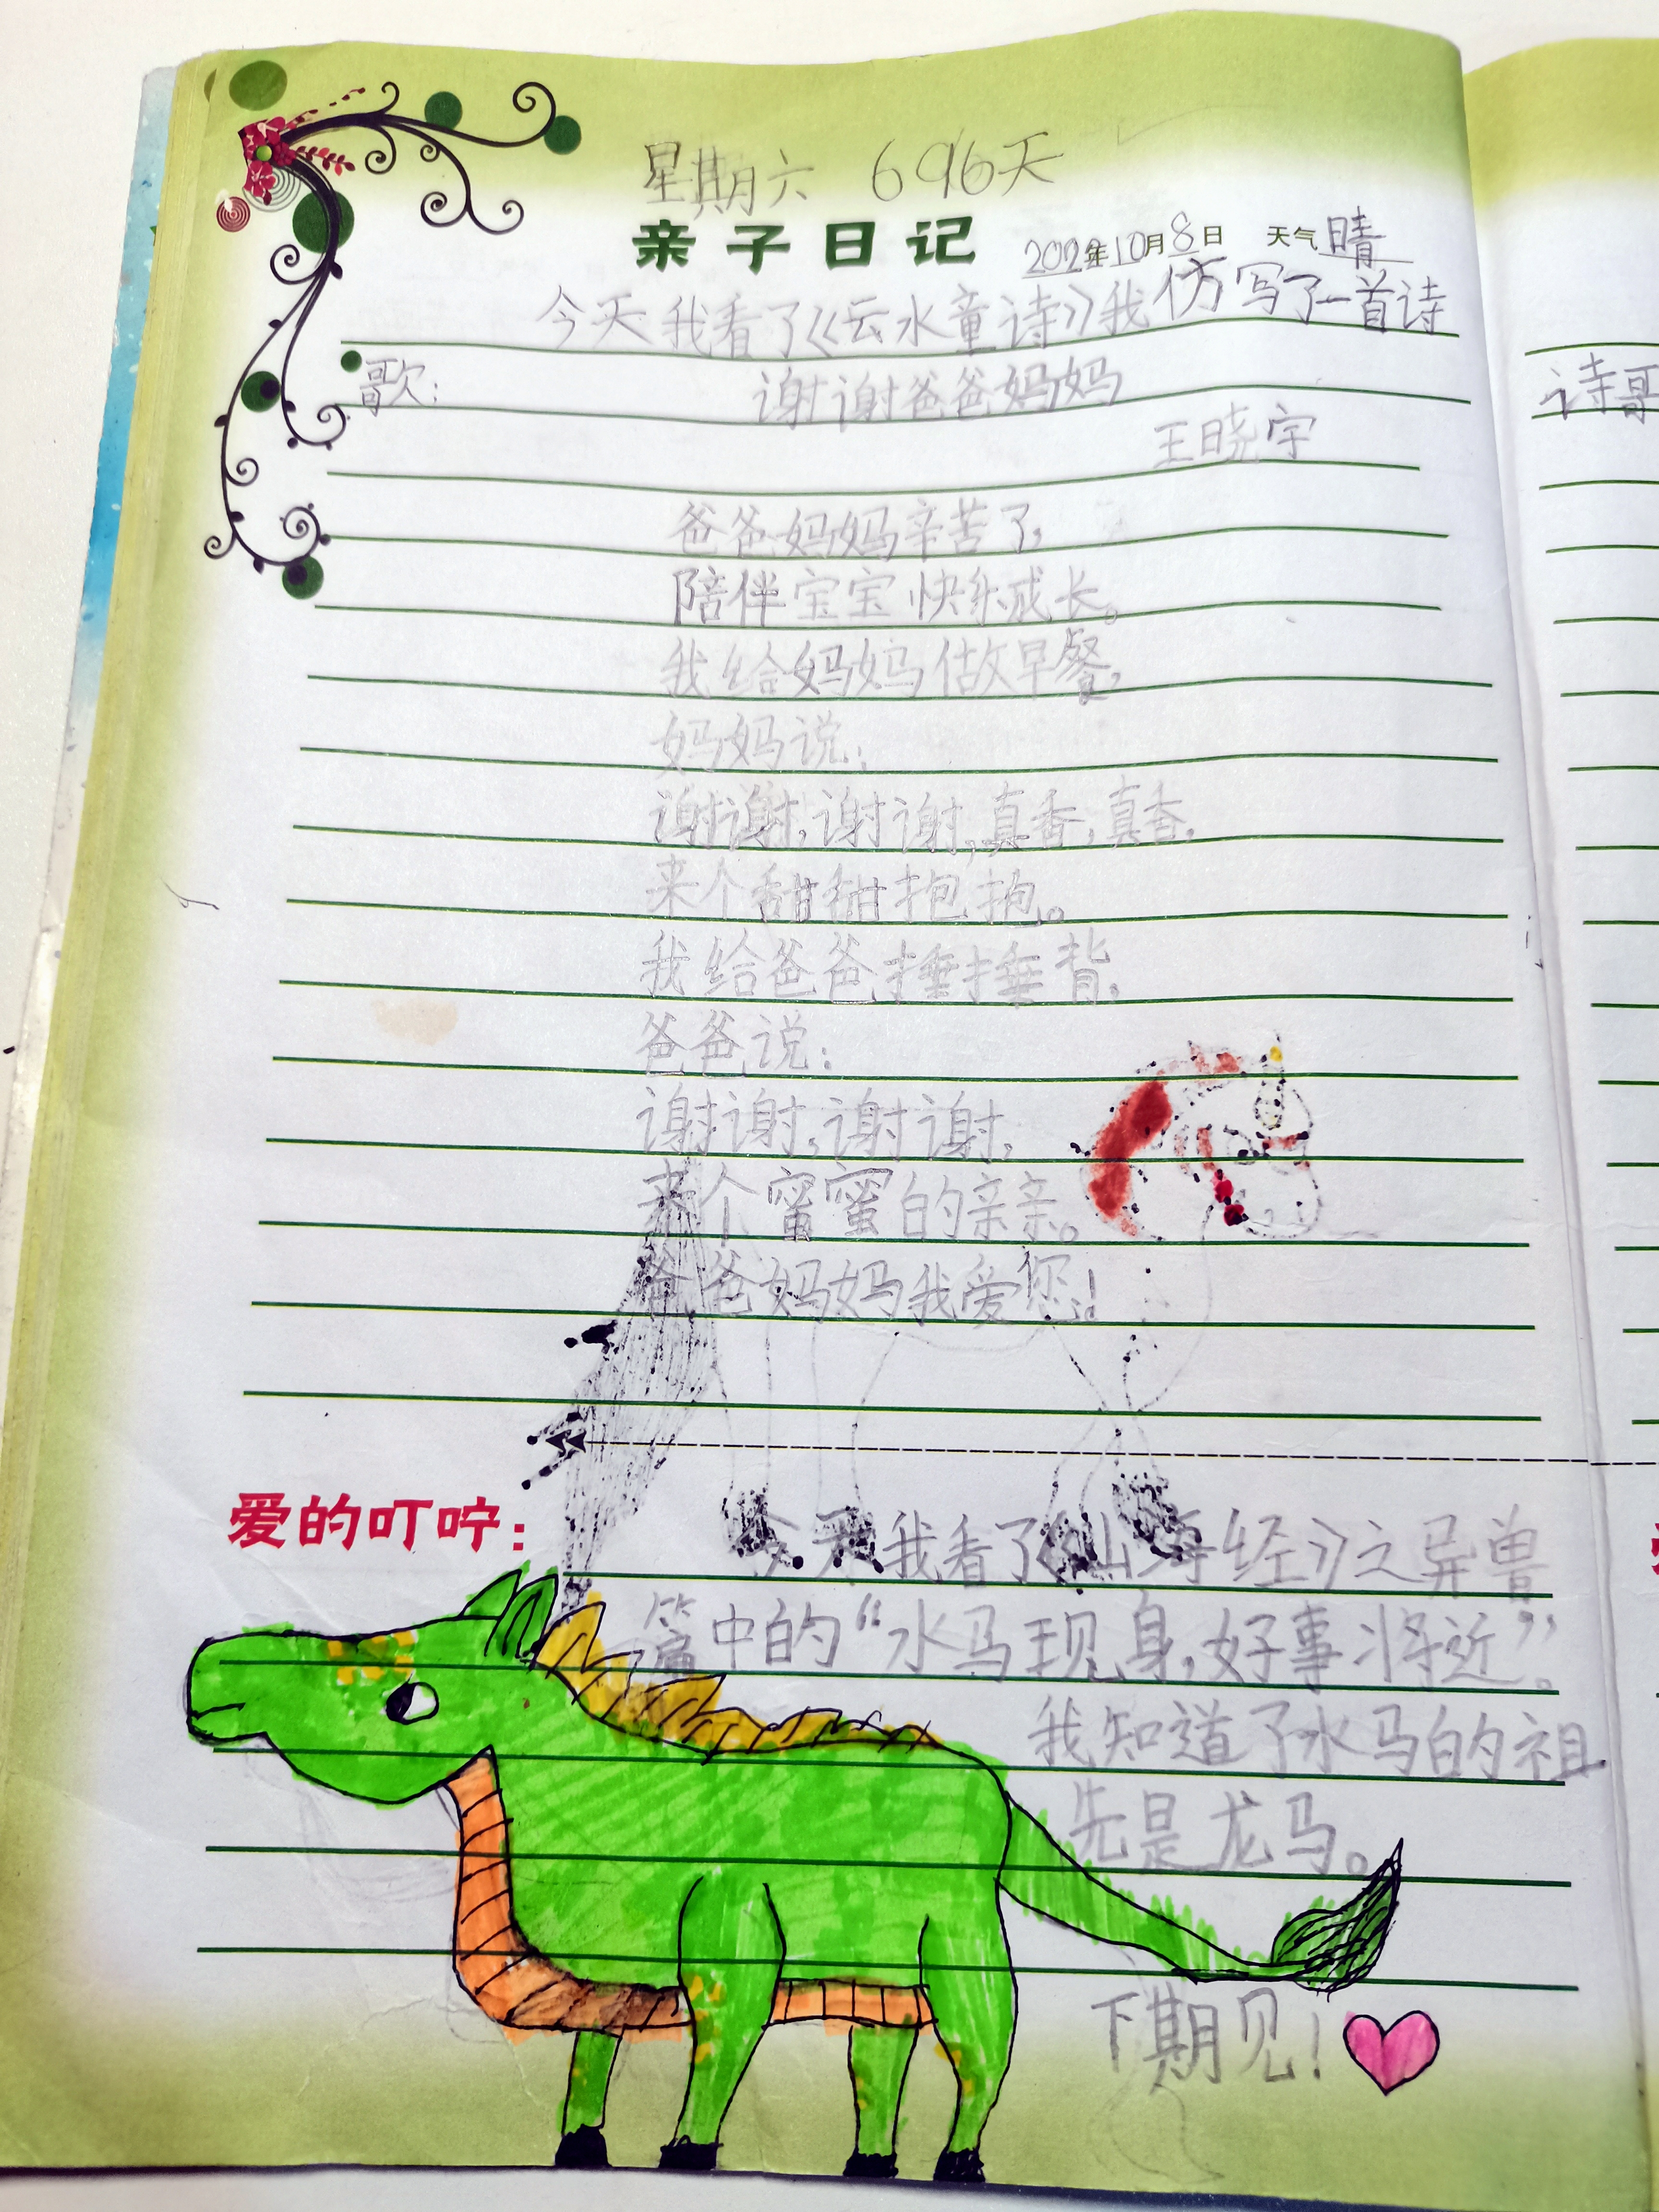 星期六 696天
亲子日记 2022年10月8日 天气晴
今天我看了《云水童诗》我仿写了一首诗
歌:
谢谢爸爸妈妈
王晓宇
爸爸妈妈辛苦了,
陪伴宝宝快乐成长。
我给妈妈做早餐,
妈妈说:
谢谢,谢谢,真香,真香,
来个甜甜抱抱。
我给爸爸捶捶背,
爸爸说:
谢谢,谢谢,
来个蜜蜜的亲亲。
爸爸妈妈我爱您!
爱的叮咛:
今天我看了《山海经》之异兽
篇中的“水马现身,好事将近”。
我知道了水马的祖
先是龙马。
下期见!
诗歌